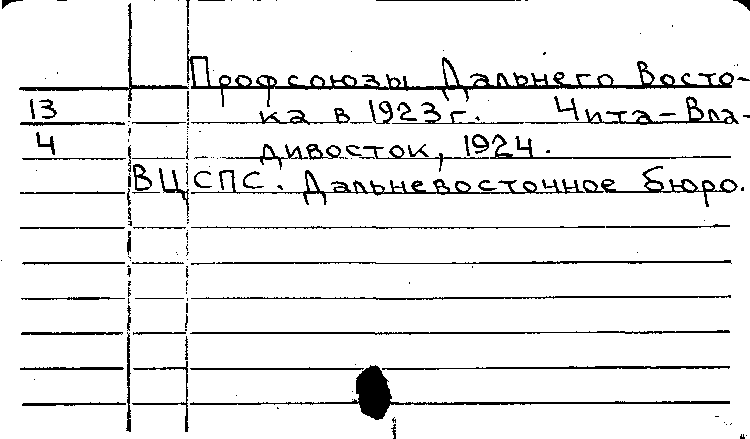 Профсоюзы Дальнего Восто-
13 ка в 1923г. Чита-Вла-
4 дивосток, 1924.
ВЦСПС. Дальневосточное бюро.